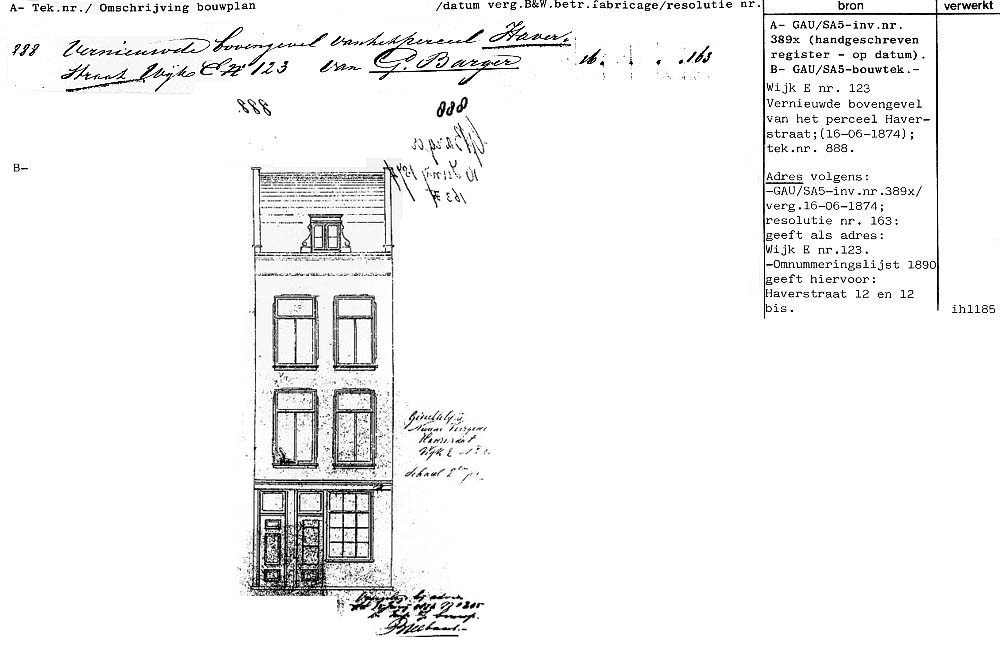 A- Tek.nr./ Omschrijving bouwplan /datum verg.B&W.betr.fabricage/resolutie nr.
bron
verwerkt
888 Vernieuwde bovengevel van het perceel Haver-
straat Wijk E No 123 van G. Barger 16 . . . 163
888.
888
B-
G Barger
10 Junij 1874
163
Haverstraat
Wijk E No
Schaal
A- GAU/SA5-inv.nr.
389x (handgeschreven
register - op datum).
B- GAU/SA5-bouwtek.-
Wijk E nr. 123
Vernieuwde bovengevel
van het perceel Haver-
straat;(16-06-1874);
tek.nr. 888.
Adres volgens:
-GAU/SA5-inv.nr.389x/
verg.16-06-1874;
resolutie nr. 163:
geeft als adres:
Wijk E nr.123.
-Omnummeringslijst 1890
geeft hiervoor:
Haverstraat 12 en 12
bis.
ih1185